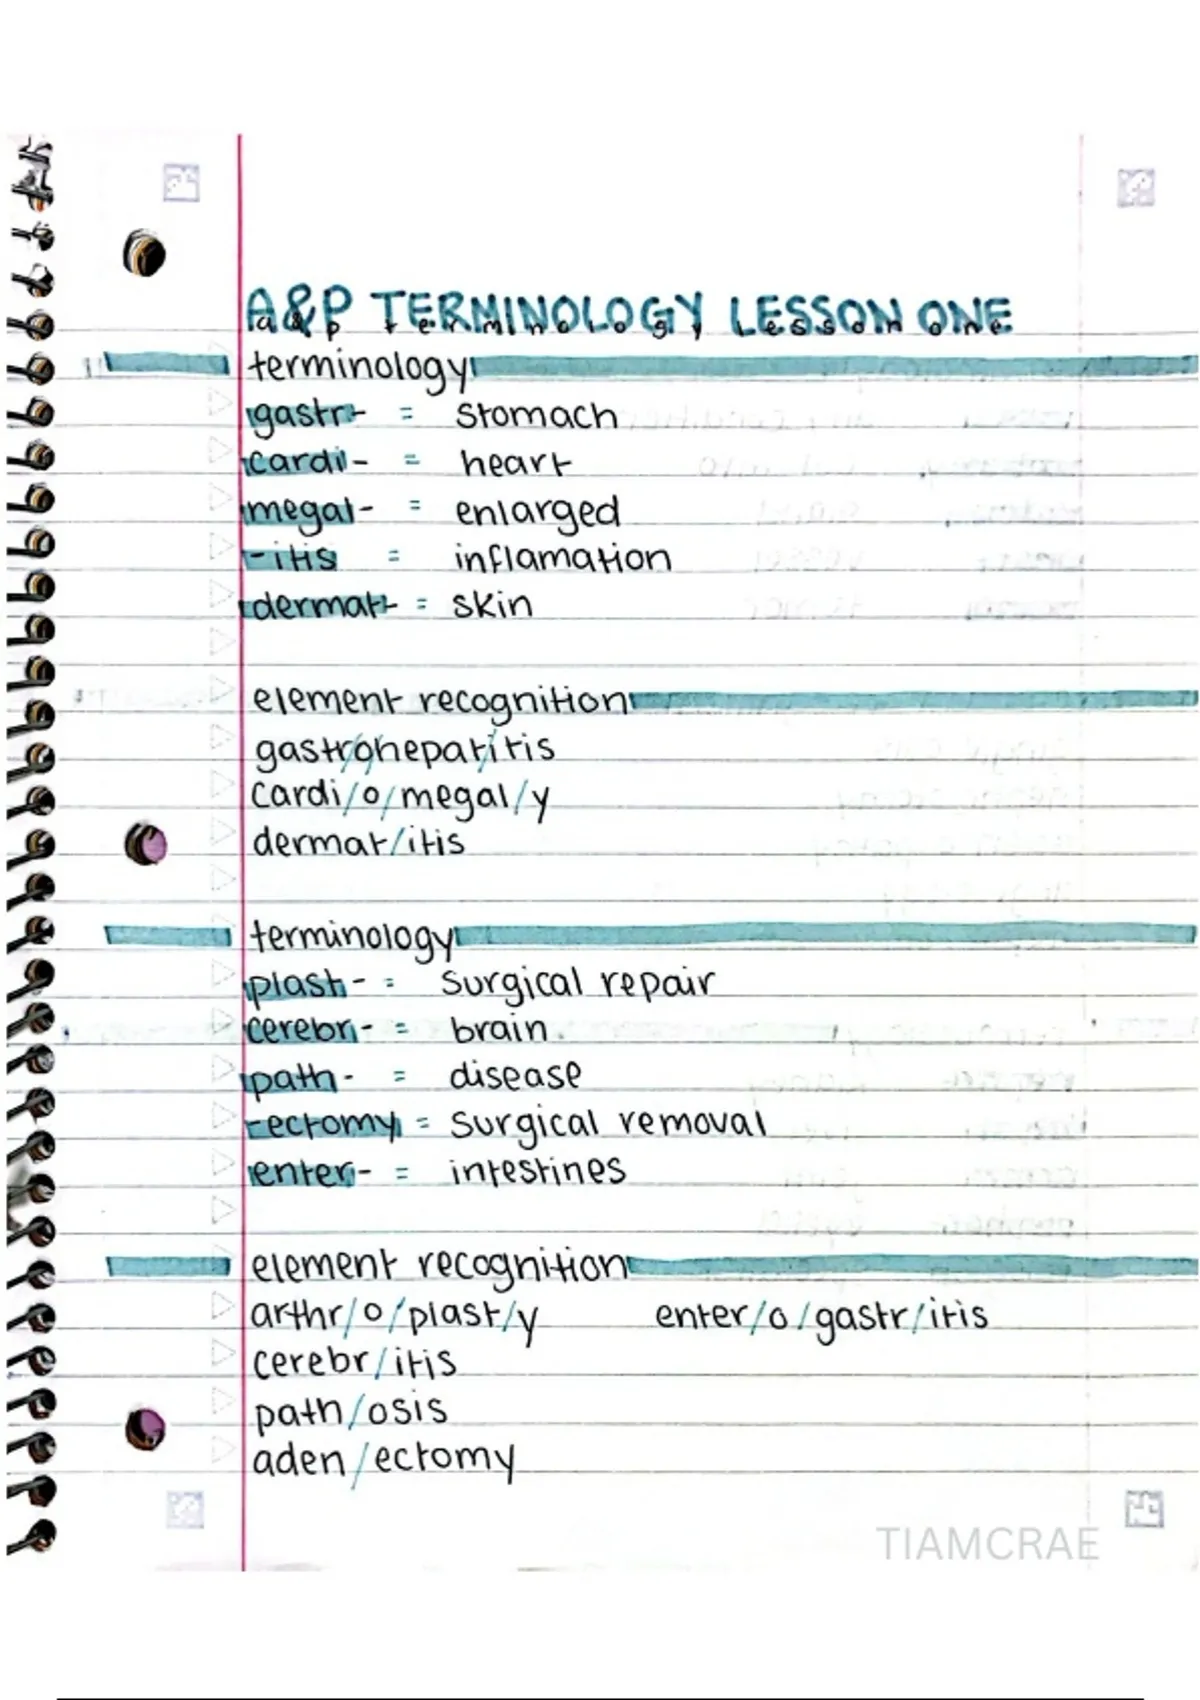 A&P TERMINOLOGY LESSON ONE
a & p terminology lesson one
terminology
gastr- = stomach
cardi- = heart
megal- = enlarged
-itis = inflamation
dermat- = skin
element recognition
gastr/o/hepat/itis
cardi/o/megal/y
dermat/itis
terminology
plast- = surgical repair
cerebr- = brain
path- = disease
-ectomy = surgical removal
enter- = intestines
element recognition
arthr/o/plast/y enter/o/gastr/itis
cerebr/itis
path/osis
aden/ectomy
TIAMCRAE